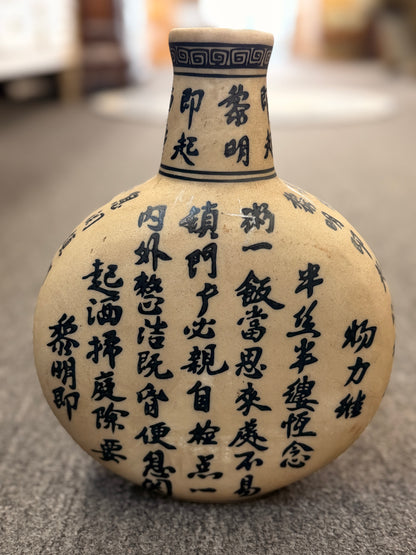 黎明
即起
黎明即
起洒掃庭除要
内外整洁既昏便息
鎖門户必親自檢点一
粥一飯當思來處不易
半丝半縷恆念
物力維